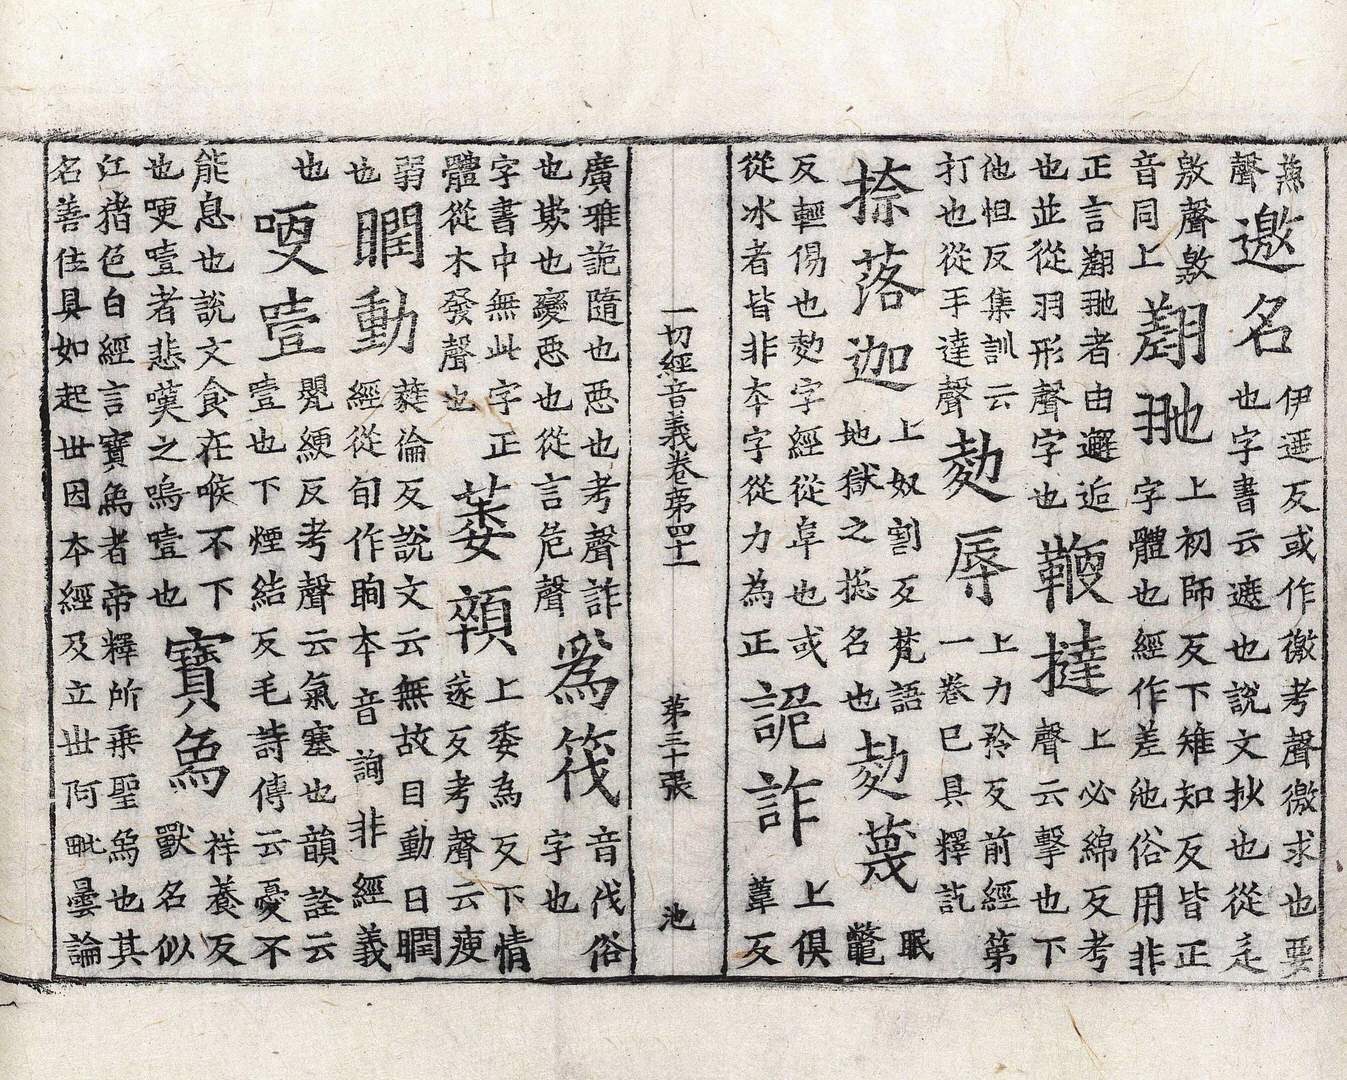 燕聲邀名伊遥反或作徼考聲徼求也要也字書云遮也說文抄也從辵
敫聲敫音同上上初師反下雉知反皆正字體也經作差池俗用非
正言者由邂逅也並從羽形聲字也鞭撻上必綿反考聲云擊也下
他怛反集訓云打也從手達聲辱上力矜反前經第一卷已具釋訖
捺落迦上奴割反梵語地獄之揔名也蔑眠鼈
反輕傷也字經從阜也或從冰者皆非本字從力為正詭詐上俱葦反
一切經音義卷第四十一 第三十張 池
廣雅詭隨也惡也考聲詐也欺也變惡也從言危聲爲筏音伐俗字也
字書中無此字正體從木發聲也萎顇上委為反下情遂反考聲云瘦
弱也瞤動蕤倫反說文云無故目動曰瞤經從旬作眴本音詢非經義
也哽壹甖綆反考聲云氣塞也韻詮云壹也下煙結反毛詩傳云憂不
能息也說文食在喉不下也哽噎者悲嘆之嗚噎也寶象祥養反獸名似
江猪色白經言寶象者帝釋所乘聖象也其名善住具如起世因本經及立世阿毗曇論